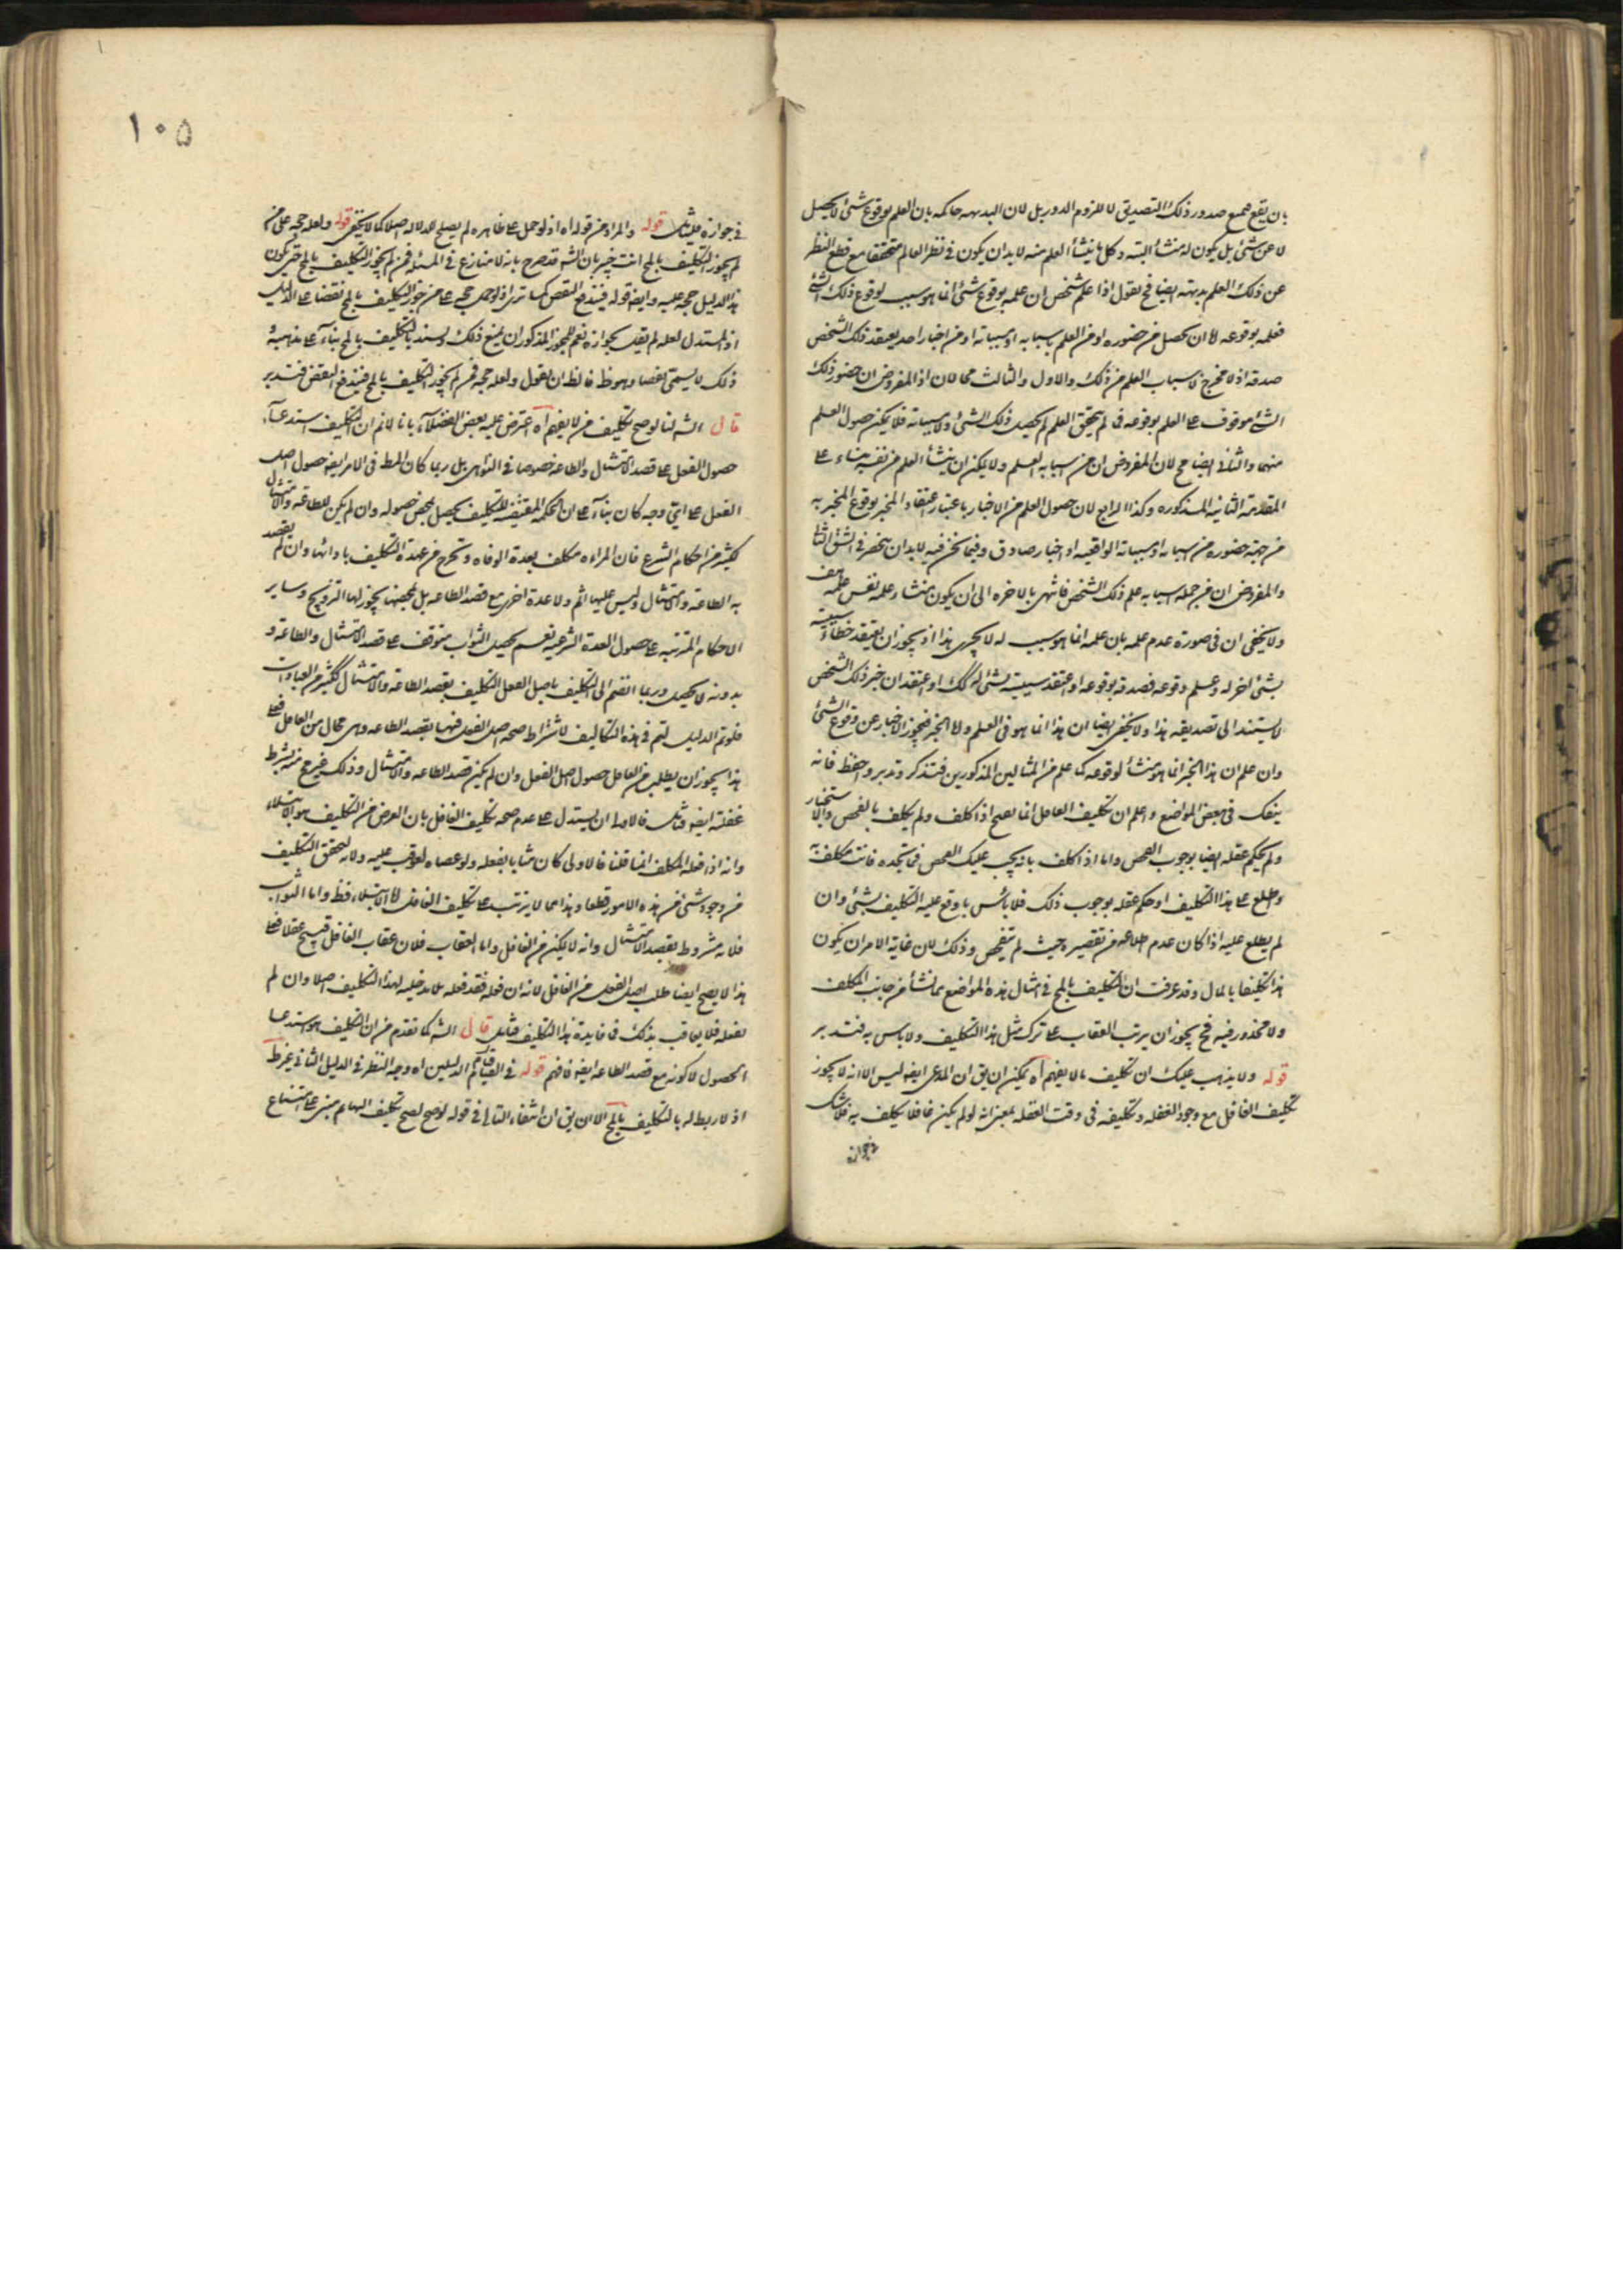 بان يقع جميع صدور ذلك التصديق لا للزوم الدور بل لان البديهه حاكمه بان العلم بوقوع شئ لا يحصل
لا عن شئ بل يكون له منشأ البته و كل ما ينشأ العلم منه لا بد ان يكون فى نظر العالم متحققا مع قطع النظر
عن ذلك العلم بديهته ايضا فح نقول اذا علم شخص ان علمه بوقوع شئ انما هو سبب لوقوع ذلك الشئ
فعلمه بوقوعه لا ان يحصل من حضوره او من العلم باسبابه او مسبباته او من اخبار احد يعتقد ذلك الشخص
صدقه اذ لا مخرج لاسباب العلم من ذلك والاول والثالث محالان اذ المفروض ان حضور ذلك
الشئ موقوف على العلم بوقوعه فما لم يتحقق العلم لم يحصل ذلك الشئ ولا مسبباته فلا يمكن حصول العلم
منهما والثانى ايضا مح لان المفروض ان من اسبابه العلم ولا يمكن ان ينشأ العلم من نفسه بناء على
المقدمة الثانيه المذكوره وكذا الرابع لان حصول العلم من الاخبار باعتبار اعتقاد المخبر بوقوع المخبر به
من جهة حضوره من اسبابه او مسبباته الواقعيه او اخبار صادق وفيما نحن فيه لابد ان ينحصر فى الشق الثانى
والمفروض ان من جمله اسبابه علم ذلك الشخص فانتهى بالاخره الى ان يكون منشاء علمه نفس علمه هف
ولا يخفى ان فى صورة عدم علمه بان علمه انما هو سبب له لا يجرى هذا اذ يجوز ان يعتقد خطاء سببيته
بشئ اخر له وعلم وقوعه فصدق بوقوعه او اعتقد سببيته بشئ له كك او اعتقد ان خبر ذلك الشخص
لا يستند الى تصديقه هذا ولا يخفى ايضا ان هذا انما هو فى العلم ولا الخبر فيجوز الاخبار عن وقوع الشئ
وان علم ان هذا الخبر انما هو منشأ لوقوعه كما علم من المثالين المذكورين فتذكر وتدبر واحفظ فانه
ينفعك فى بعض المواضع واعلم ان تكليف الغافل انما يصح اذا كلف ولم يكلف بالفحص والاستخبار
ولم يحكم عقله ايضا بوجوب الفحص واما اذا كلف بانه يجب عليك الفحص فما تجده فانت مكلف به
وطلع على هذا التكليف او حكم عقله بوجوب ذلك فلا بأس بأن وقع عليه التكليف بشئ وان
لم يطلع عليه اذا كان عدم اطلاعه من تقصيره حيث لم يتفحص وذلك لان غاية الامر ان يكون
هذا تكليفا بالمحال وقد عرفت ان التكليف بالمح فى امثال هذه المواضع مما نشأ من جانب المكلف
ولا محذور فيه فح يجوز ان يرتب العقاب على ترك مثل هذا التكليف ولا باس به فتدبر
قوله ولا يذهب عليك ان تكليف ما لا يفهم اه يمكن ان يق ان المدعى ايضا ليس الا انه لا يجوز
تكليف الغافل مع وجود الغفله وتكليفه فى وقت الغفله بمعنى انه لو لم يكن غافلا يكلف به فلا شك
فى جوازه
١٠٥
فى جوازه فليتامل قوله والمراد من قوله اه اذ لو حمل على ظاهره لم يصلح للدلالة اصلا كما لا يخفى قوله ولعله حجه على من
لم يجوز التكليف بالمح انت خبير بان الشه قد صرح بانه لا منازع فى المسئله فمن لم يجوز التكليف بالمح حتى يكون
هذا الدليل حجه عليه وايضا قوله فيندفع النقض كما ترى اذ لو حمل حجة على من جوز التكليف بالمح نقضا على الدليل
اذ المستدل لعله لم يقل بجوازه نعم للمجوز المذكور ان يمنع ذلك ويسند بالتكليف بالمح بناء على مذهبه
ذلك لا يسمى نقضا وهو ظ فالظ ان يقول ولعله حجه فمن لم يجوز التكليف بالمح فيندفع النقض فتدبر
قال الشه لنا لو صح تكليف من لا يفهم اه اعترض عليه بعض الفضلاء بانا لا نم ان التكليف استدعاء
حصول الفعل على قصد الامتثال والطاعه خصوصا فى النواهى بل ربما كان المط فى الامر ايضا حصول اصل
الفعل على اى وجه كان بناء على ان الحكمه المقتضيه للتكليف يحصل بمحض حصوله وان لم يكن للطاعه والامتثال
كثير من احكام الشرع فان المراه مكلف بعدة الوفاه وتخرج من عهدة التكليف بادائها وان لم تقصد
به الطاعه والامتثال وليس عليها اثم ولا عدة اخرى مع قصد الطاعه بل بمحضها يجوز لها التزويج وساير
الاحكام المترتبه على حصول العدة الشرعيه نعم تحصيل الثواب متوقف على قصد الامتثال والطاعه و
بدونه لا يحصل وربما انضم الى التكليف باصل الفعل التكليف بقصد الطاعه والامتثال ككثير من العبادات
فلو تم الدليل لتم فى هذه التكاليف لاشتراط صحه اصل الفعل فيها بقصد الطاعه وهى محال من الغافل فعلى
هذا يجوز ان يطلب من الغافل حصول اصل الفعل وان لم يكن قصد الطاعه والامتثال وذلك غير ممتنع بشرط
غفلته ايضا فتامل فالاولى ان يستدل على عدم صحه تكليف الغافل بان الغرض من التكليف هو الابتلاء
وانه اذا فعله المكلف انما قلنا فالاولى كان مثابا بفعله ولو عصاه لعوقب عليه ولا بد لتحقق التكليف
من وجود شئ من هذه الامور قطعا وهذا مما لا يترتب على تكليف الغافل اما الابتلاء فظ واما الثواب
فلانه مشروط بقصد الامتثال وانه لا يمكن من الغافل واما العقاب فلان عقاب الغافل قبيح عقلا فعلى
هذا لا يصح ايضا طلب اصل الفعل من الغافل لانه ان فعله فقد فعله بلا مدخليه لهذا التكليف اصلا وان لم
يفعله فلا يعاقب بذلك فما فايدة هذا التكليف فتامل قال الشه كما تقدم من ان التكليف هو استدعاء
الحصول لا كونه مع قصد الطاعه ايضا فافهم قوله فى الفيا قائم الدليلين اه وجه النظر فى الدليل الثانى غير ظ
اذ لا ربط له بالتكليف بالمح الا ان يق ان انتفاء التالى فى قوله لو صح لصح تكليف البهايم مبنى على امتناع